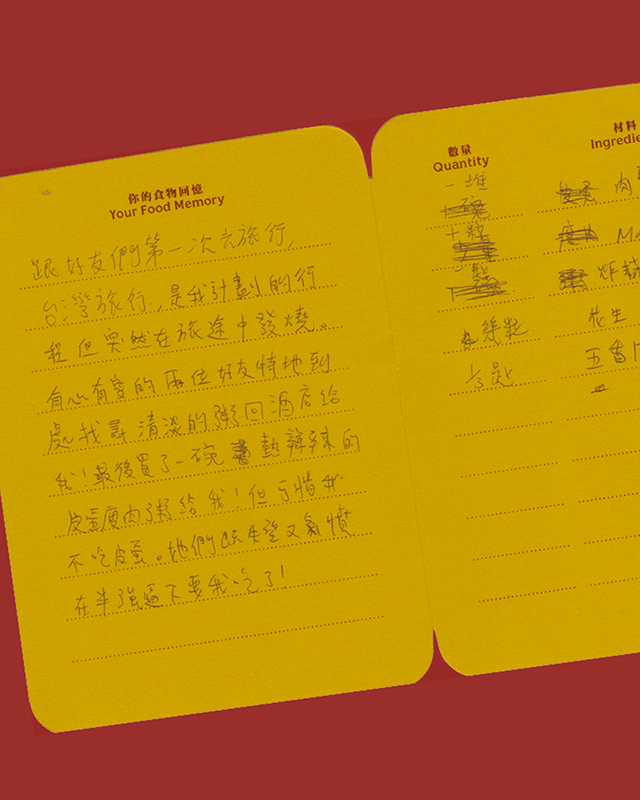 你的食物回憶
Your Food Memory
跟好友們第一次去旅行,
台灣旅行,是我計劃的行
程但突然在旅途中發燒。
有心有愛的兩位好友特地到
處找尋清淡的粥回酒店給
我!最後買了一碗熱辣辣的
皮蛋瘦肉粥給我!但可惜我
不吃皮蛋。她們既失望又氣憤
在半強逼下要我吃了!
數量
Quantity
一堆
十粒
幾粒
1/3 匙
材料
Ingredie
肉
炸
花生
五香